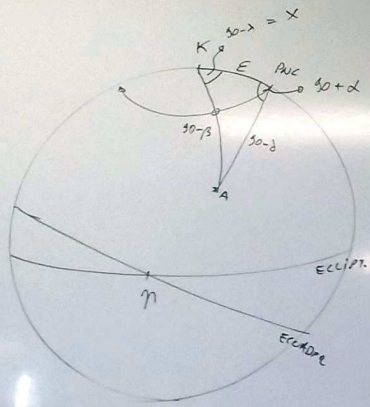 90-λ = X
K
E
PNC
90+α
90-β
90-δ
A
ECLIPT.
ECUADOR